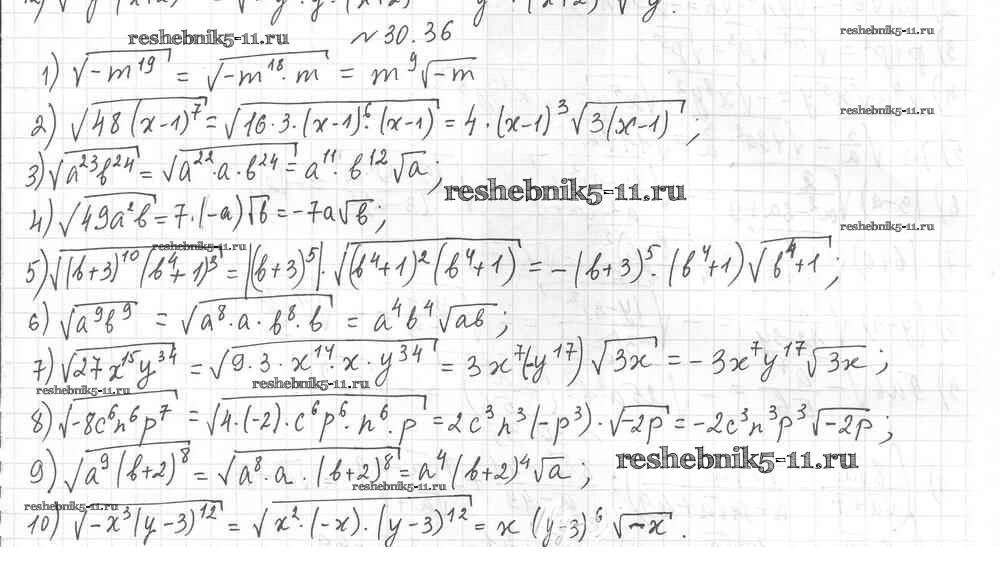 reshebnik5-11.ru
№ 30.36
reshebnik5-11.ru
1) √(-m^19) = √(-m^18 · m) = m^9 √(-m)
2) √(48(x-1)^7) = √(16·3·(x-1)^6·(x-1)) = 4·(x-1)^3 √(3(x-1));
reshebnik5-11.ru
3) √(a^23 b^24) = √(a^22·a·b^24) = a^11·b^12 √a;
reshebnik5-11.ru
4) √(49a^2b) = 7·(-a)√b = -7a√b;
reshebnik5-11.ru
reshebnik5-11.ru
5) √((b+3)^10 (b^4+1)^3) = |(b+3)^5|·√((b^4+1)^2(b^4+1)) = -(b+3)^5·(b^4+1)√(b^4+1);
6) √(a^9b^9) = √(a^8·a·b^8·b) = a^4b^4√(ab);
7) √(27x^15y^34) = √(9·3·x^14·x·y^34) = 3x^7(-y^17)√(3x) = -3x^7y^17√(3x);
reshebnik5-11.ru
reshebnik5-11.ru
8) √(-8c^6n^6p^7) = √(4·(-2)·c^6p^6·n^6·p) = 2c^3n^3(-p^3)·√(-2p) = -2c^3n^3p^3√(-2p);
9) √(a^9(b+2)^8) = √(a^8·a·(b+2)^8) = a^4(b+2)^4√a;
reshebnik5-11.ru
reshebnik5-11.ru
reshebnik5-11.ru
10) √(-x^3(y-3)^12) = √(x^2·(-x)·(y-3)^12) = x(y-3)^6√(-x).